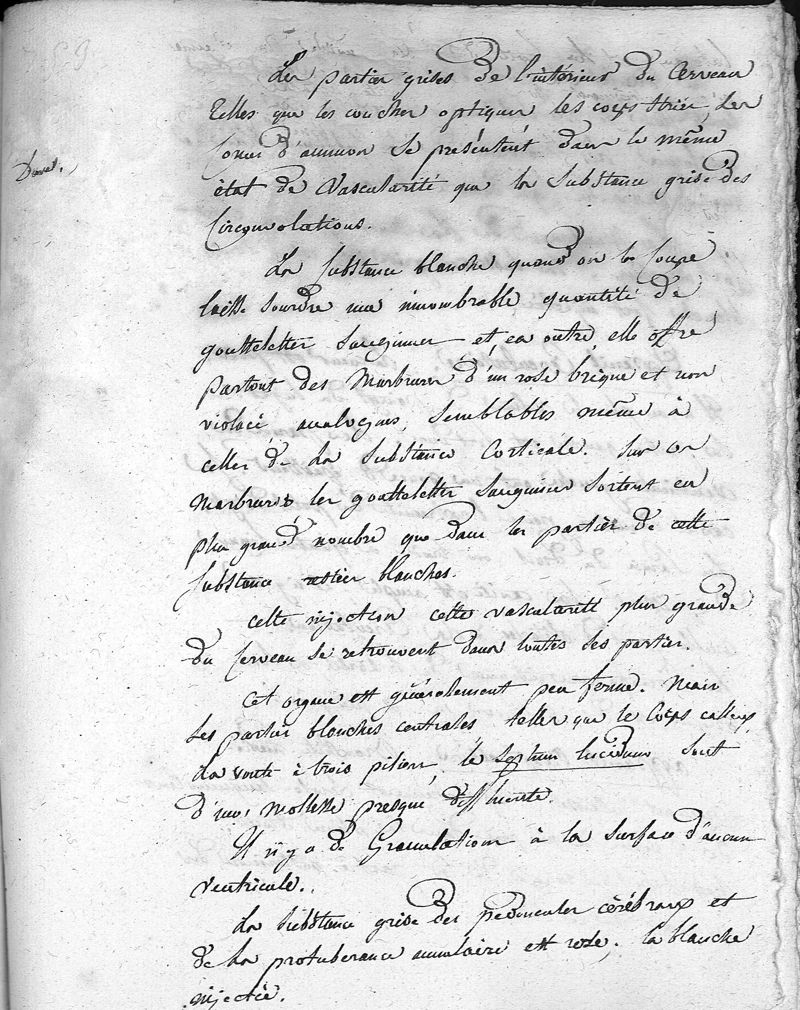 Les parties grises de l'intérieur du Cerveau
telles que les couches optiques les corps striés, les
cornes d'ammon se présentent dans le même
état de Vascularité que la substance grise des
Circonvolutions.
La substance blanche quand on la coupe
laisse sourdre une innombrable quantité de
gouttelettes sanguines et, en outre, elle offre
partout des Marbrures d'un rose brique et non
violacé analogues, semblables même à
celles de la substance Corticale. Sur ces
Marbrures les gouttelettes sanguines sortent en
plus grand nombre que dans les parties de cette
substance restées blanches.
Cette injection cette vascularité plus grande
du Cerveau se retrouvent dans toutes ses parties.
Cet organe est généralement peu ferme. Mais
les parties blanches centrales telles que le Corps calleux,
la voute à trois piliers, le septum lucidum sont
d'une mollesse presque diffluente.
Il n'y a de Granulations à la surface d'aucun
ventricule.
La substance grise des pédoncules cérébraux et
de la protubérance annulaire est rose; la blanche
injectée.